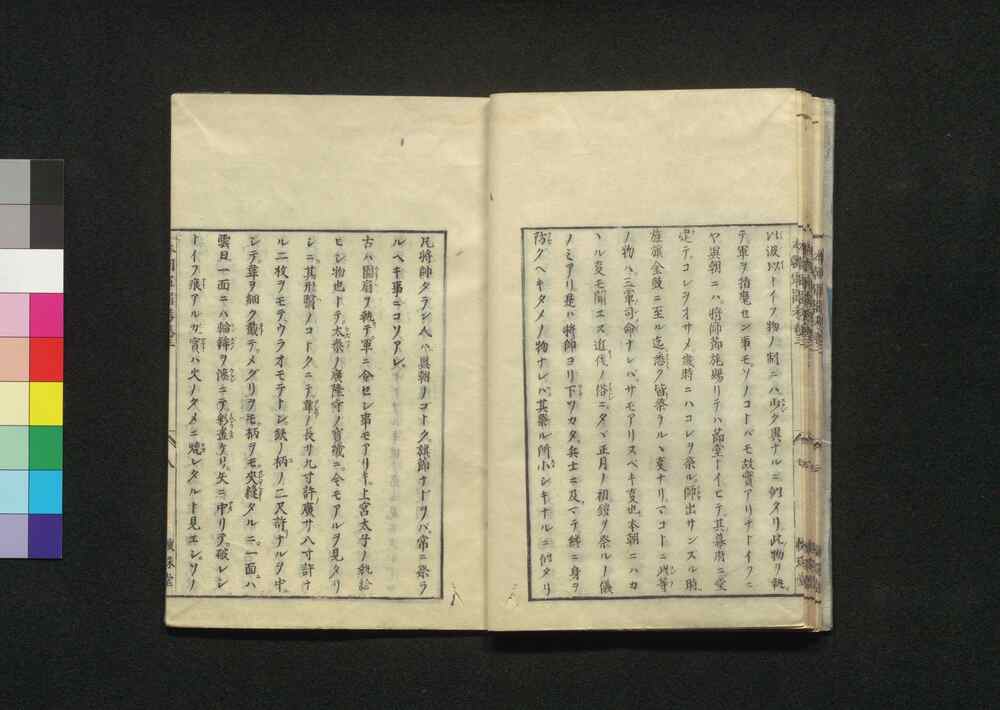 此波以トイフ物ノ制ニハ少ク異ナルニ似タリ此物ヲ執
テ軍ヲ指麾セシ事モソノコトバモ故實アリナトイフニ
ヤ異朝ニハ將師節旄賜リテハ節堂トイヒテ其幕府ニ堂
建テコレヲオサメ歳時ニハコレヲ祭ル師出サンスル時
旌旗金鼓ニ至ル迄悉ク皆祭ラルヽ変ナリマコトニ此等
ノ物ハ三軍司命ナレバサモアリヌベキ変也本朝ニハカ
ヽル変モ聞エス近代ノ俗ニタヾ正月ノ祖鎧ヲ祭ルノ儀
ノミアリ是ハ將師ヨリ下ツカタ兵士ニ及マテ縛ニ身ヲ
防クヘキタメノ物ナレバ其祭ル所小シキナルニ似タリ
凡將帥タラン人ハ異朝ノコトク旗節ナトヲバ常ニ祭ラ
ルヘキ事ニコソアレ
古ハ團扇ヲ執テ軍ニ令セシ事モアリキ上宮太子ノ執給
ヒシ物也トテ太秦ノ廣隆寺ノ寳藏ニ今モアルヲ見タリ
シニ其形翳ノコトクニテ韋ノ長サ九寸許廣サ八寸許ナ
ル二枚ヲモテウラオモテトシ鉄ノ柄ノ二尺許ナルヲ中
ニシテ韋ヲ細ク截テメグリヲモ柄ヲモ夾縫タルニ一面ハ
雲日一面ニハ輪鋒ヲ漆ニテ彩畫ケリ矢ニ中リテ破レシ
トイフ痕アルガ實ハ火ノタメニ燒レタルト見エシソノ
八